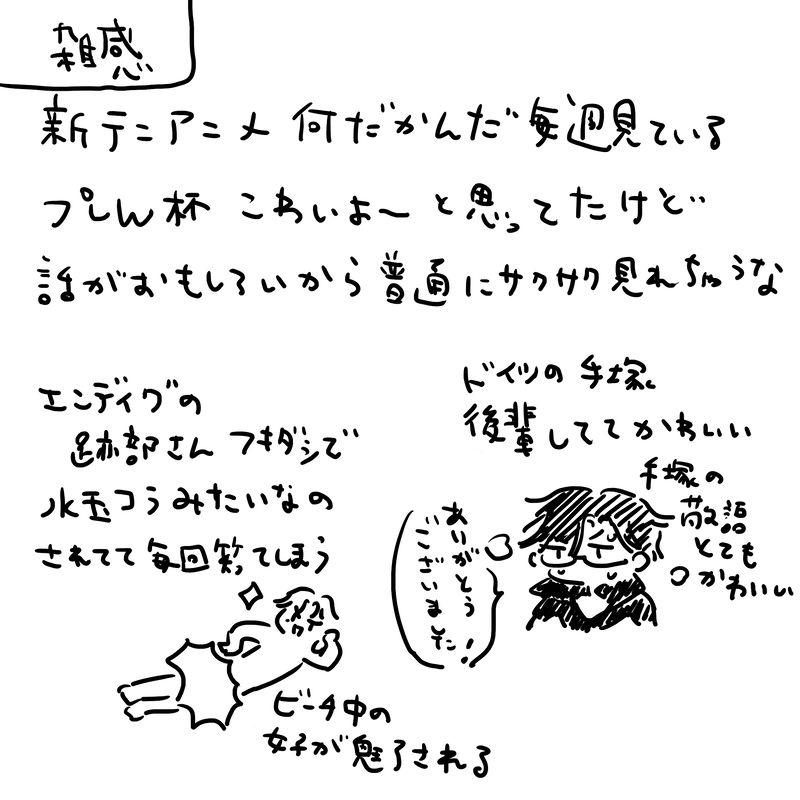 雑感
新テニアニメ 何だかんだ毎週見ている
プレW杯 こわいよ〜と思ってたけど
話がおもしろいから普通にサクサク見れちゃうな
エンディグの
跡部さん フキダシで
水玉コラみたいなの
されてて毎回笑ってしまう
ビーチ中の
女子が魅了される
ドイツの手塚
後輩しててかわいい
手塚の
敬語
とても
かわいい
ありがとう
ございました!